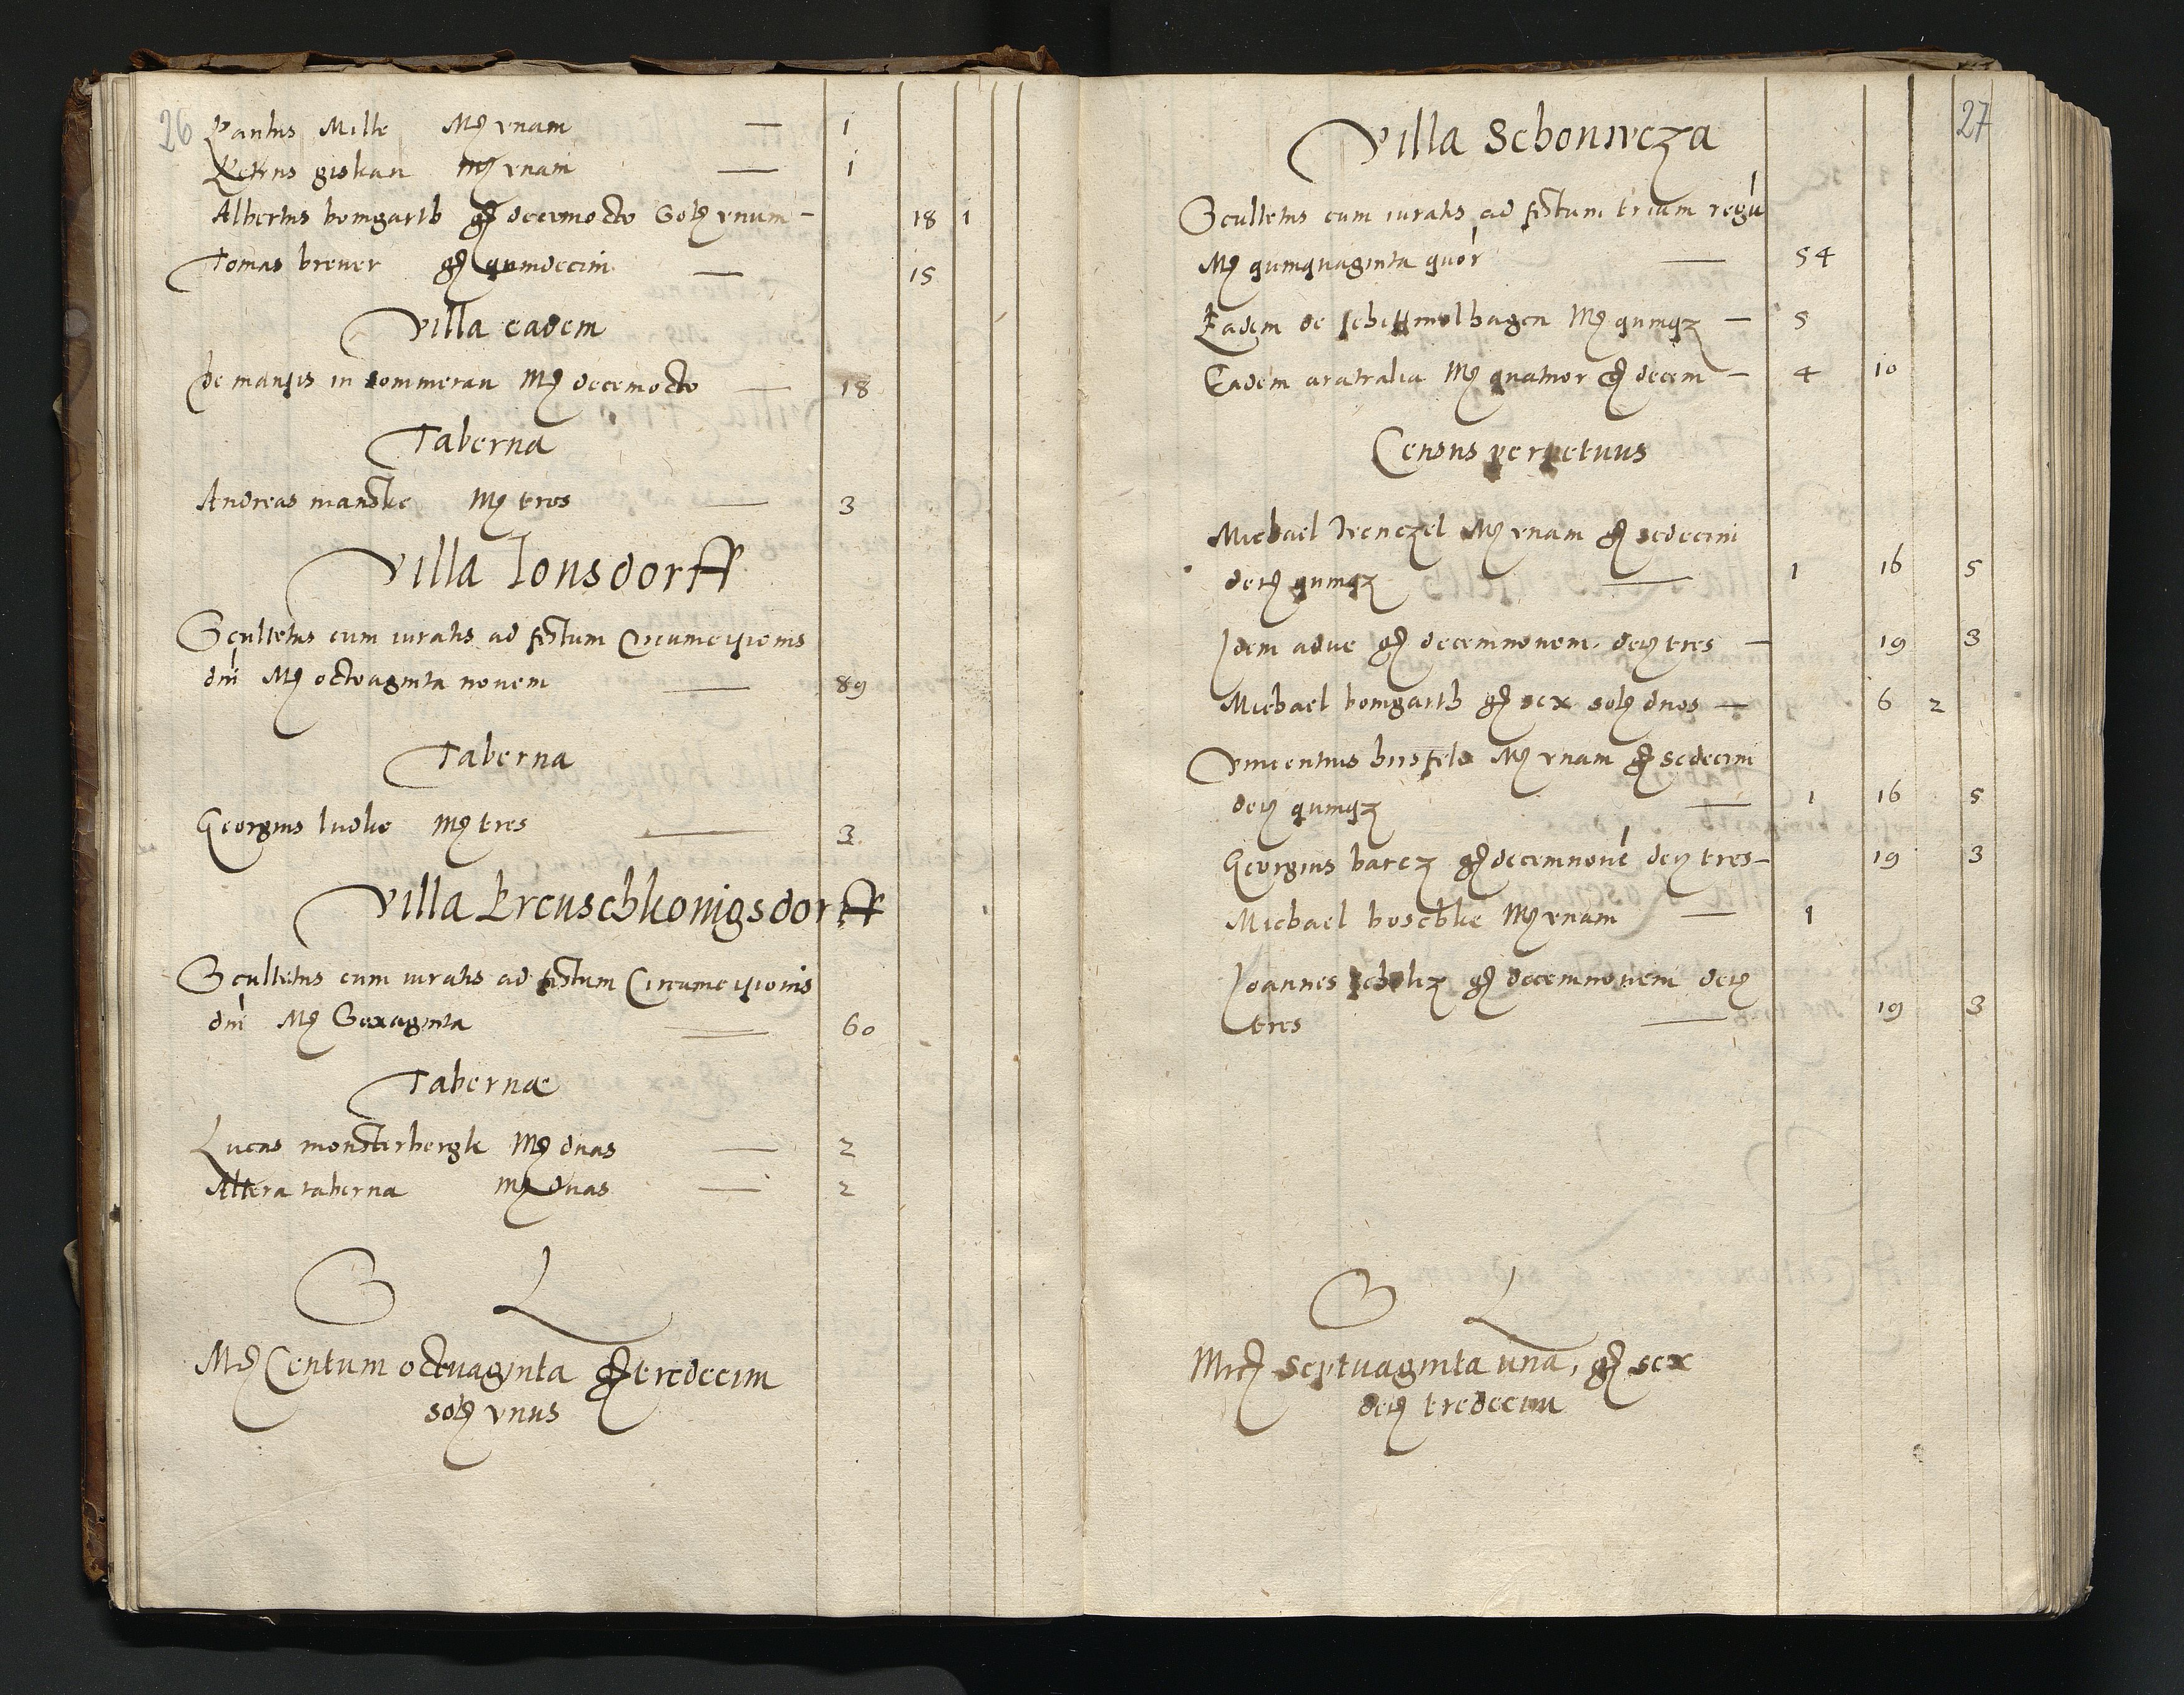 26
Paulus Mille Mꝛ vnam — 1
Petrus giskau Mꝛ vnam — 1
Albertus bomgarth gꝛ decemocto Solꝭ vnum — 18 1
Tomas brewer gꝛ quindecim — 15
Villa eadem
De mansis in sommerau Mꝛ decemocto — 18
Taberna
Andreas manske Mꝛ tres — 3
Villa Jonsdorff
Scultetus cum iuratis ad festum Circumcisionis
dni Mꝛ octoaginta novem — 89
Taberna
Georgius ludke Mꝛ tres — 3
Villa Kreuschkonigsdorff
Scultetus cum iuratis ad festum Circumcisionis
dni Mꝛ Sexaginta — 60
Tabernæ
Lucas monsterbergk Mꝛ duas — 2
Altera taberna Mꝛ duas — 2
S L
Mꝛ Centum octuaginta gꝛ tredecim
solꝭ vnus
27
Villa Schonwcza
Scultetus cum iuratis ad festum trium regū
Mꝛ quinquaginta quor — 54
Eadem de schettmolhagen Mꝛ quinqꝫ — 5
Eadem aratralia Mꝛ quatuor gꝛ decem — 4 10
Census perpetuus
Michael Wenczel Mꝛ vnam gꝛ sedecim
deꝭ quinqꝫ — 1 16 5
Idem aduc gꝛ decemnovem deꝭ tres — 19 3
Michael bomgarth gꝛ sex solꝭ duos — 6 2
Vincentius hirsfeld Mꝛ vnam gꝛ sedecim
deꝭ quinqꝫ — 1 16 5
Georgius barcz gꝛ decemnouē deꝭ tres — 19 3
Michael boschke Mꝛ vnam — 1
Joannes scholcz gꝛ decemnovem deꝭ
tres — 19 3
S L
Mrꝭ Septuaginta una, gꝛ sex
deꝭ tredecim